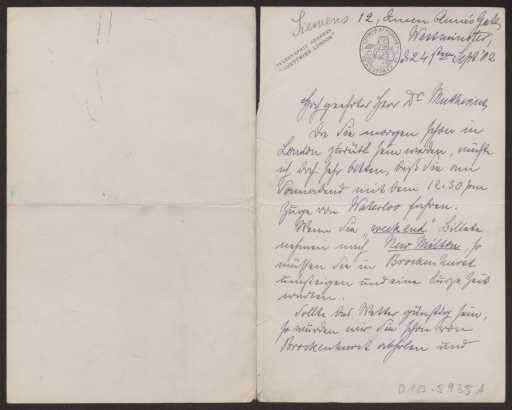 Siemens 12, Queen Anne's Gate,
Westminster,
TELEGRAPHIC ADDRESS
LONDON
d. 24 Sept. 02
Hochgeehrter Herr Dr Muthesius
Da Sie morgen schon in
London zurück sein werden, möchte
ich doch sehr bitten, daß Sie am
Sonnabend mit dem 12.30 pm
Zuge von Waterloo fahren.
Wenn Sie "weekend" Billete
nehmen nach New Milton, so
müssen Sie in Brockenhurst
umsteigen und eine kurze Zeit
warten.
Sollte das Wetter günstig sein,
so würden wir Sie schon von
Brockenhurst abholen und
D102-5935 A